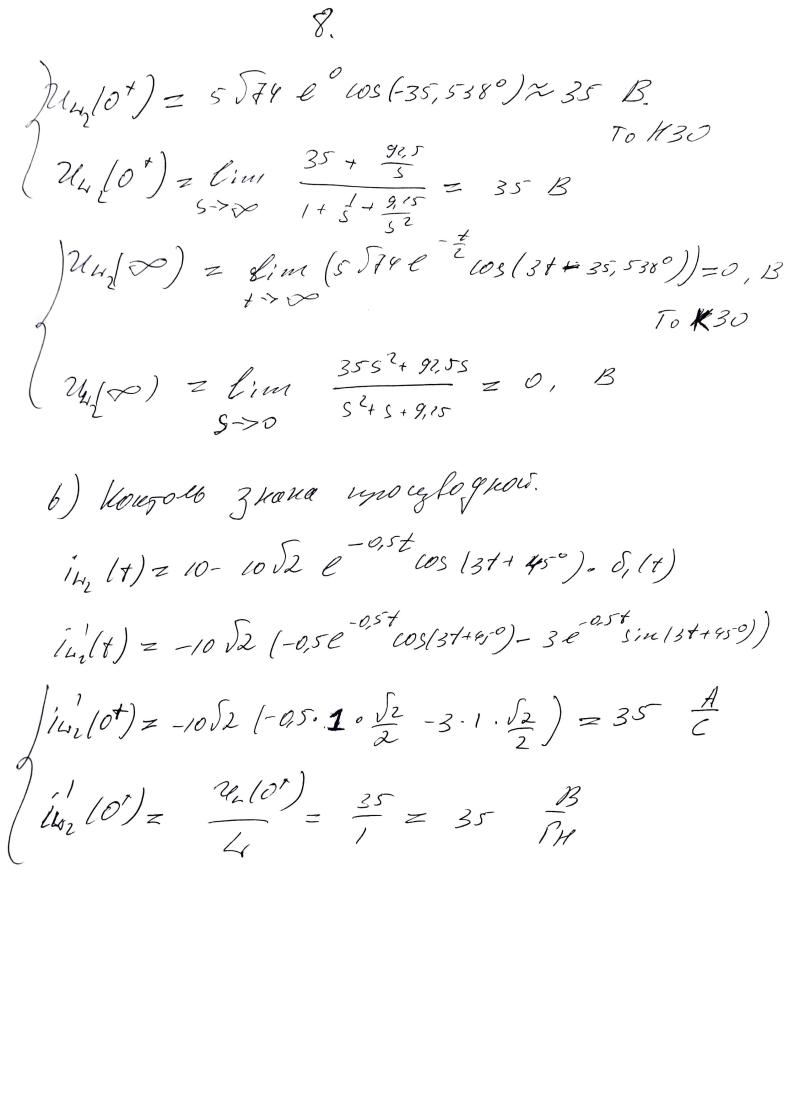 8.
u_{L_2}(0^+) = 5√74 e^0 cos(-35,538°) ≈ 35 В.
То НЗО
u_{L_2}(0^+) = lim_{s→∞} (35 + 92,5/s)/(1 + 1/s + 9,25/s^2) = 35 В
u_{L_2}(∞) = lim_{t→∞} (5√74 e^{-t/2} cos(3t - 35,538°)) = 0, В
То КЗО
u_{L_2}(∞) = lim_{s→0} (35s^2 + 92,5s)/(s^2 + s + 9,25) = 0, В
в) Контоль знака производной.
i_{L_2}(t) = 10 - 10√2 e^{-0,5t} cos(3t + 45°) · δ_1(t)
i'_{L_2}(t) = -10√2 (-0,5e^{-0,5t} cos(3t+45°) - 3e^{-0,5t} sin(3t+45°))
i'_{L_2}(0^+) = -10√2 (-0,5 · 1 · √2/2 - 3 · 1 · √2/2) = 35 А/С
i'_{L_2}(0^+) = u_L(0^+)/L = 35/1 = 35 В/Гн